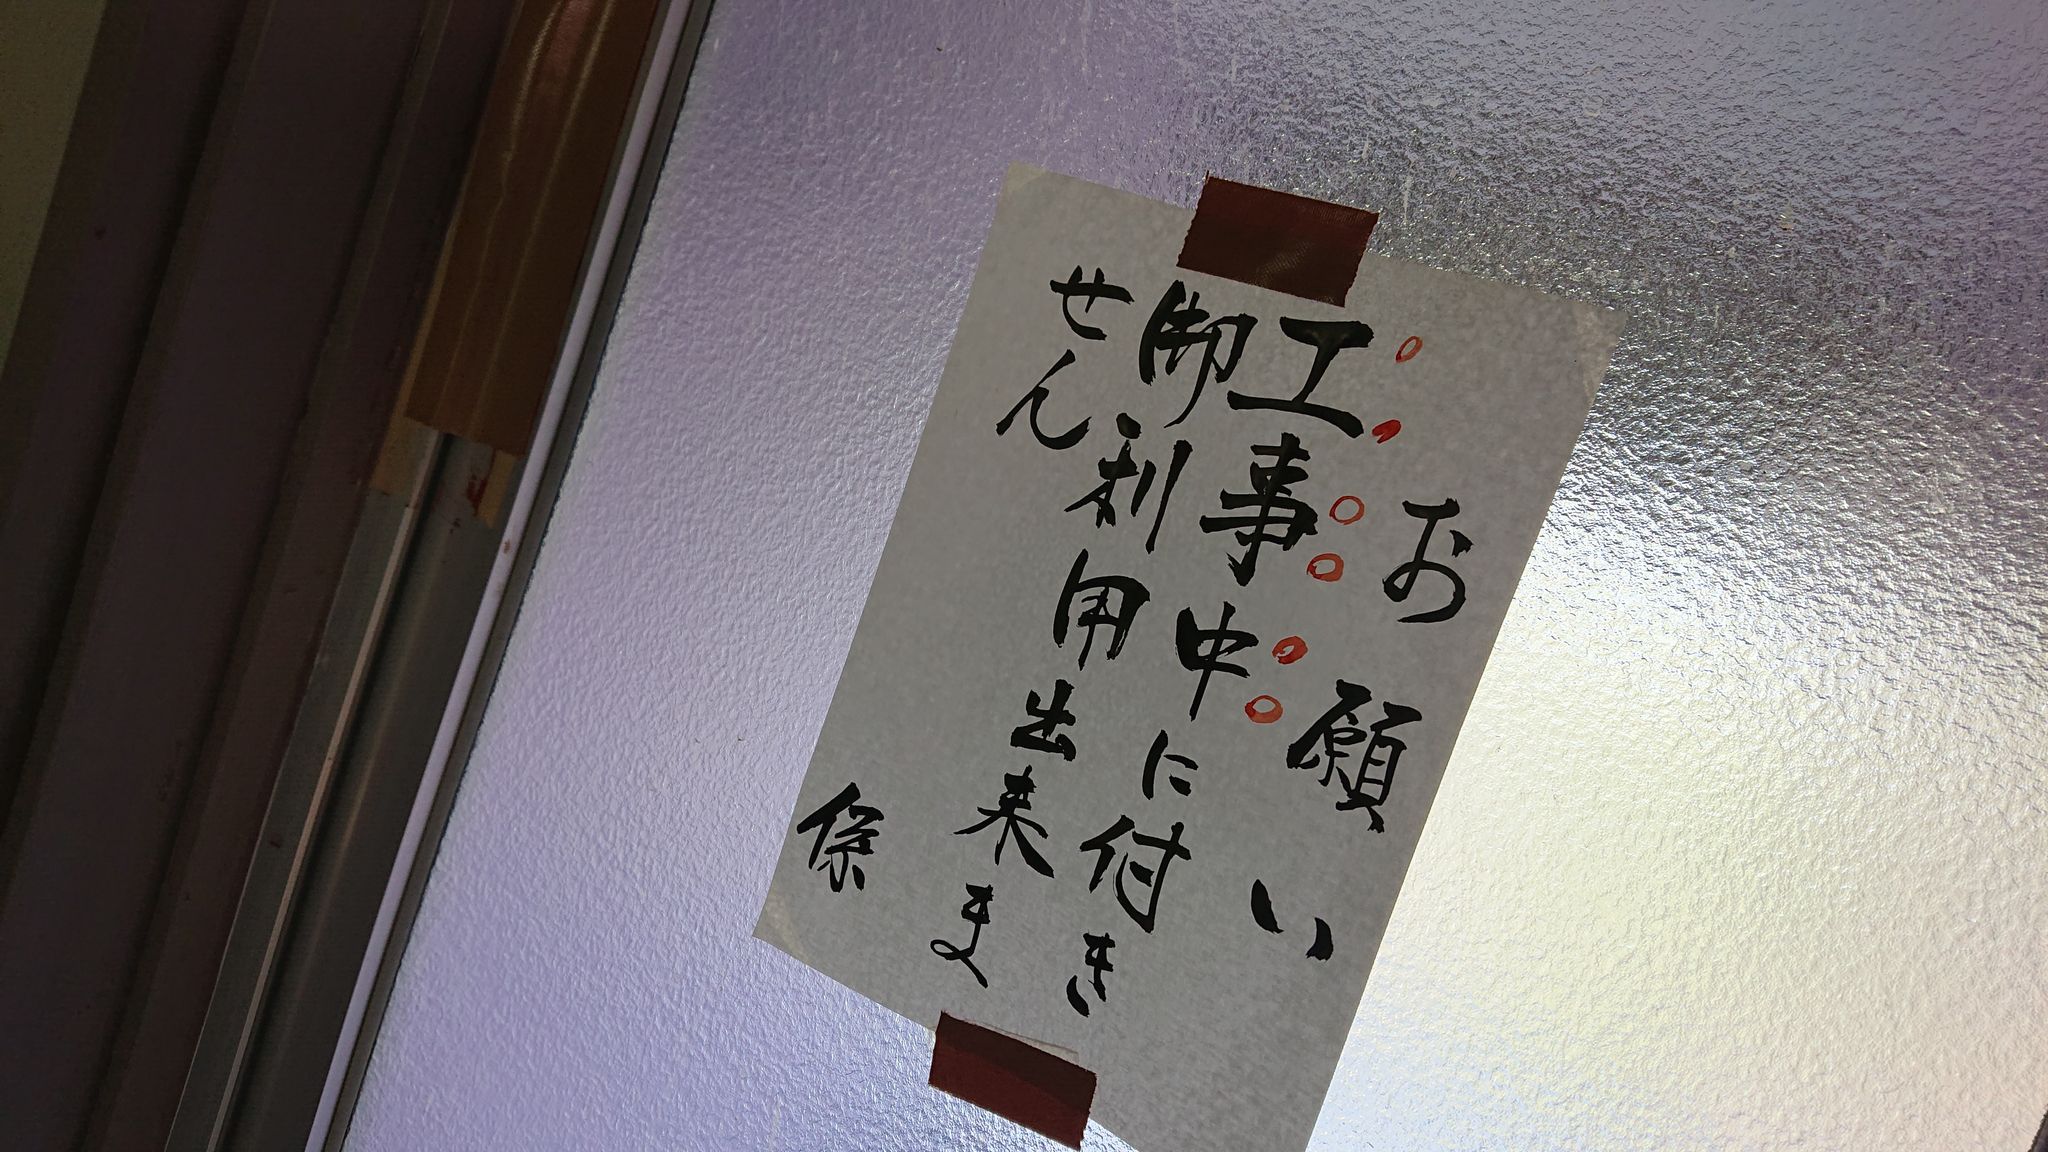 お願い
工事中に付き
御利用出来ま
せん
係